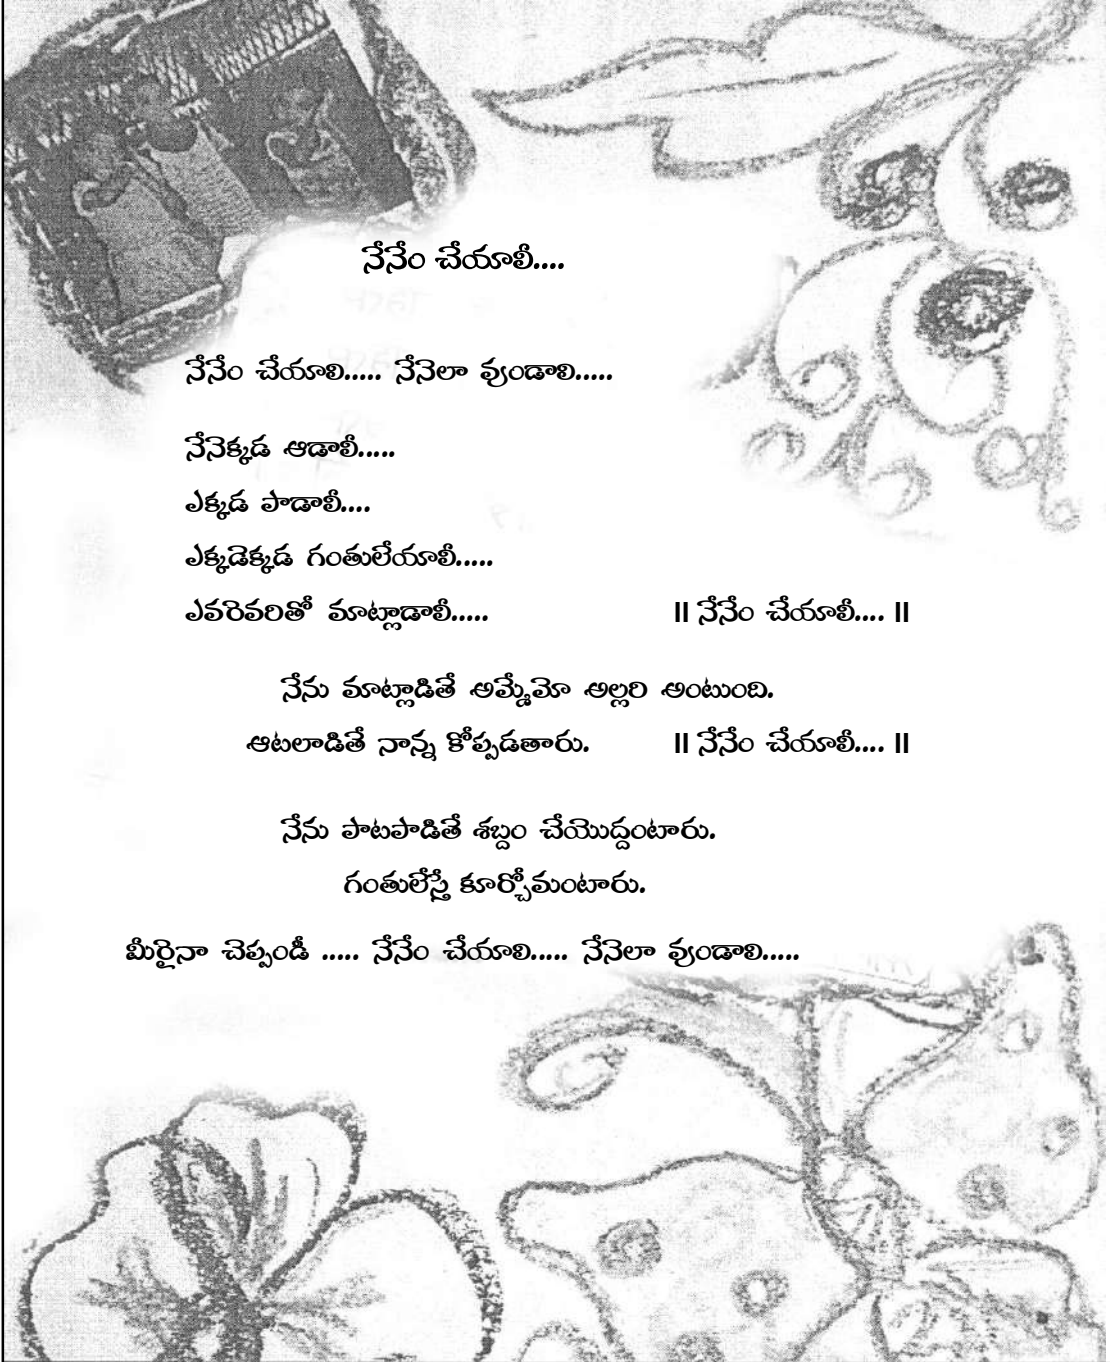 నేనేం చేయాలీ....
నేనేం చేయాలి..... నేనెలా వ్యండాలి.....
నేనెక్కడ ఆడాలీ.....
ఎక్కడ పాడాలీ....
ఎక్కడెక్కడ గంతులేయాలీ.....
ఎవరెవరితో మాట్లాడాలీ..... ॥ నేనేం చేయాలీ.... ॥
నేను మాట్లాడితే అమ్మేమో అల్లరి అంటుంది.
ఆటలాడితే నాన్న కోప్పడతారు. ॥ నేనేం చేయాలీ.... ॥
నేను పాటపాడితే శబ్దం చేయొద్దంటారు.
గంతులేస్తే కూర్చోమంటారు.
మీరైనా చెప్పండీ ..... నేనేం చేయాలి..... నేనెలా వ్యండాలి.....